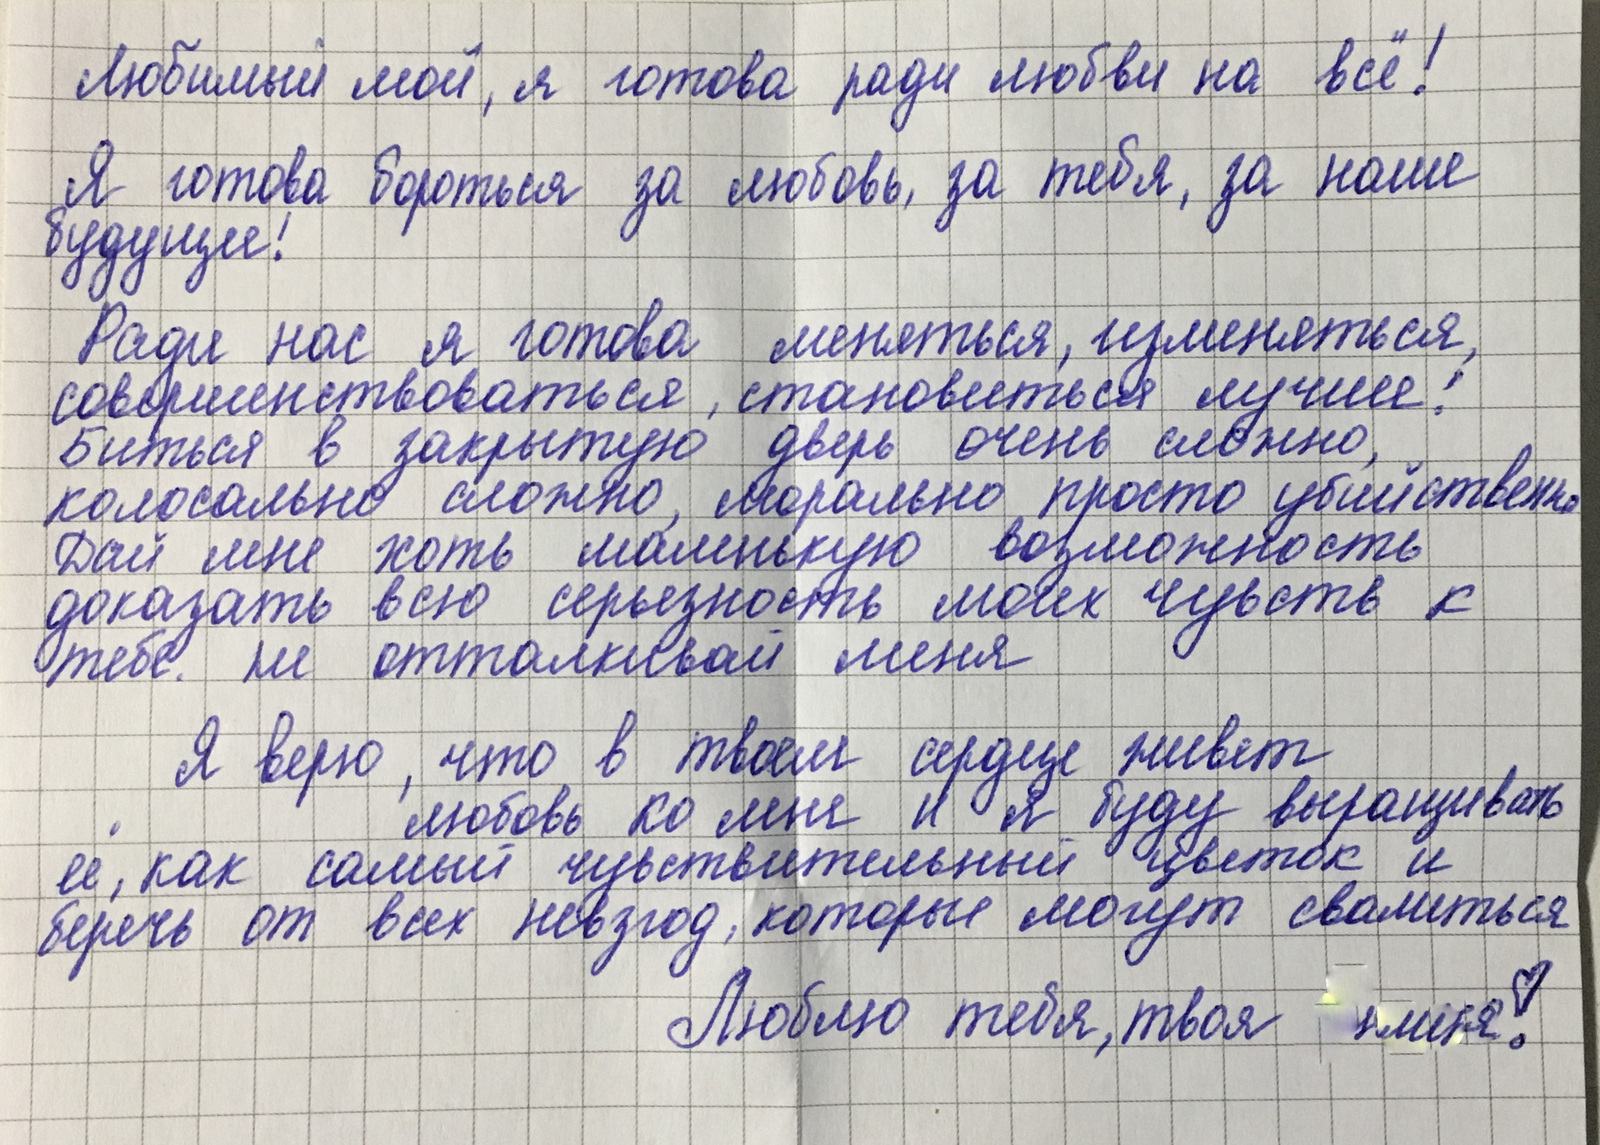 Любимый мой, я готова ради любви на всё!
Я готова бороться за любовь, за тебя, за наше
будущее!
Ради нас я готова меняться, изменяться,
совершенствоваться, становиться лучше!
Биться в закрытую дверь очень сложно,
колосально сложно, морально просто убийственно
Дай мне хоть маленькую возможность
доказать всю серьезность моих чувств к
тебе. не отталкивай меня
Я верю, что в твоем сердце живет
любовь ко мне и я буду выращивать
её, как самый чувствительный цветок и
беречь от всех невзгод, которые могут свалиться
Люблю тебя, твоя